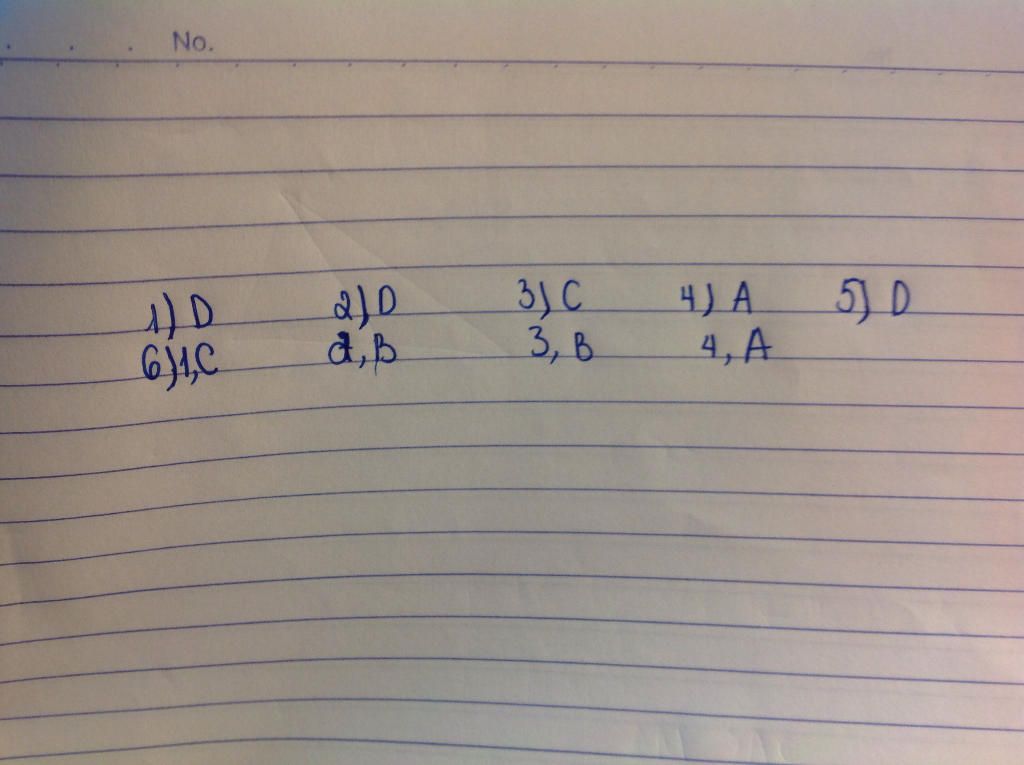 No.
1) D 2) D 3) C 4) A 5) D
6) 1, C 2, B 3, B 4, A